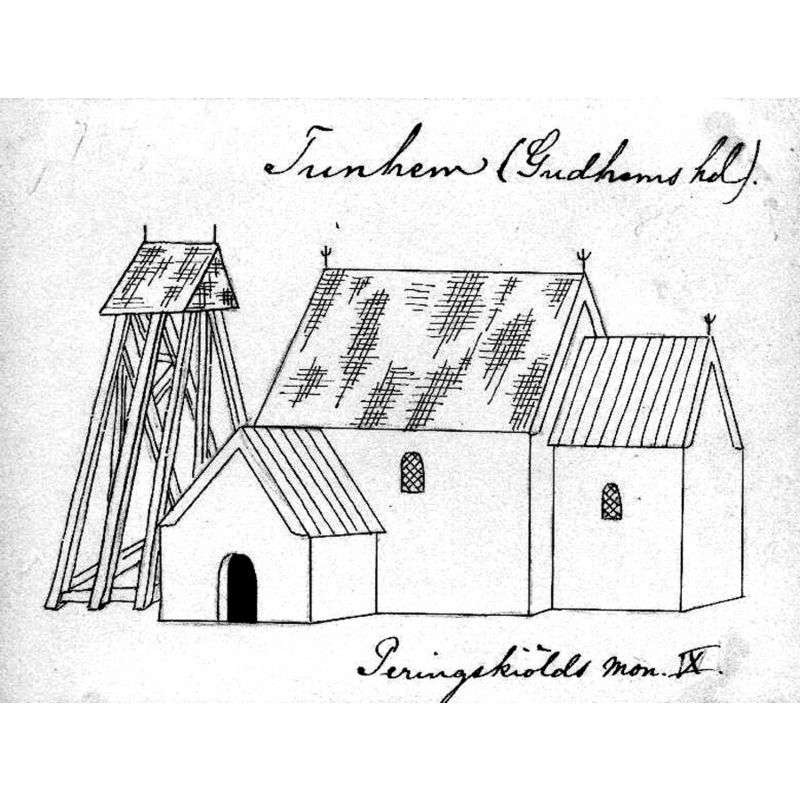 Tunhem (Gudhems hd).
Peringskiölds mon. IX.